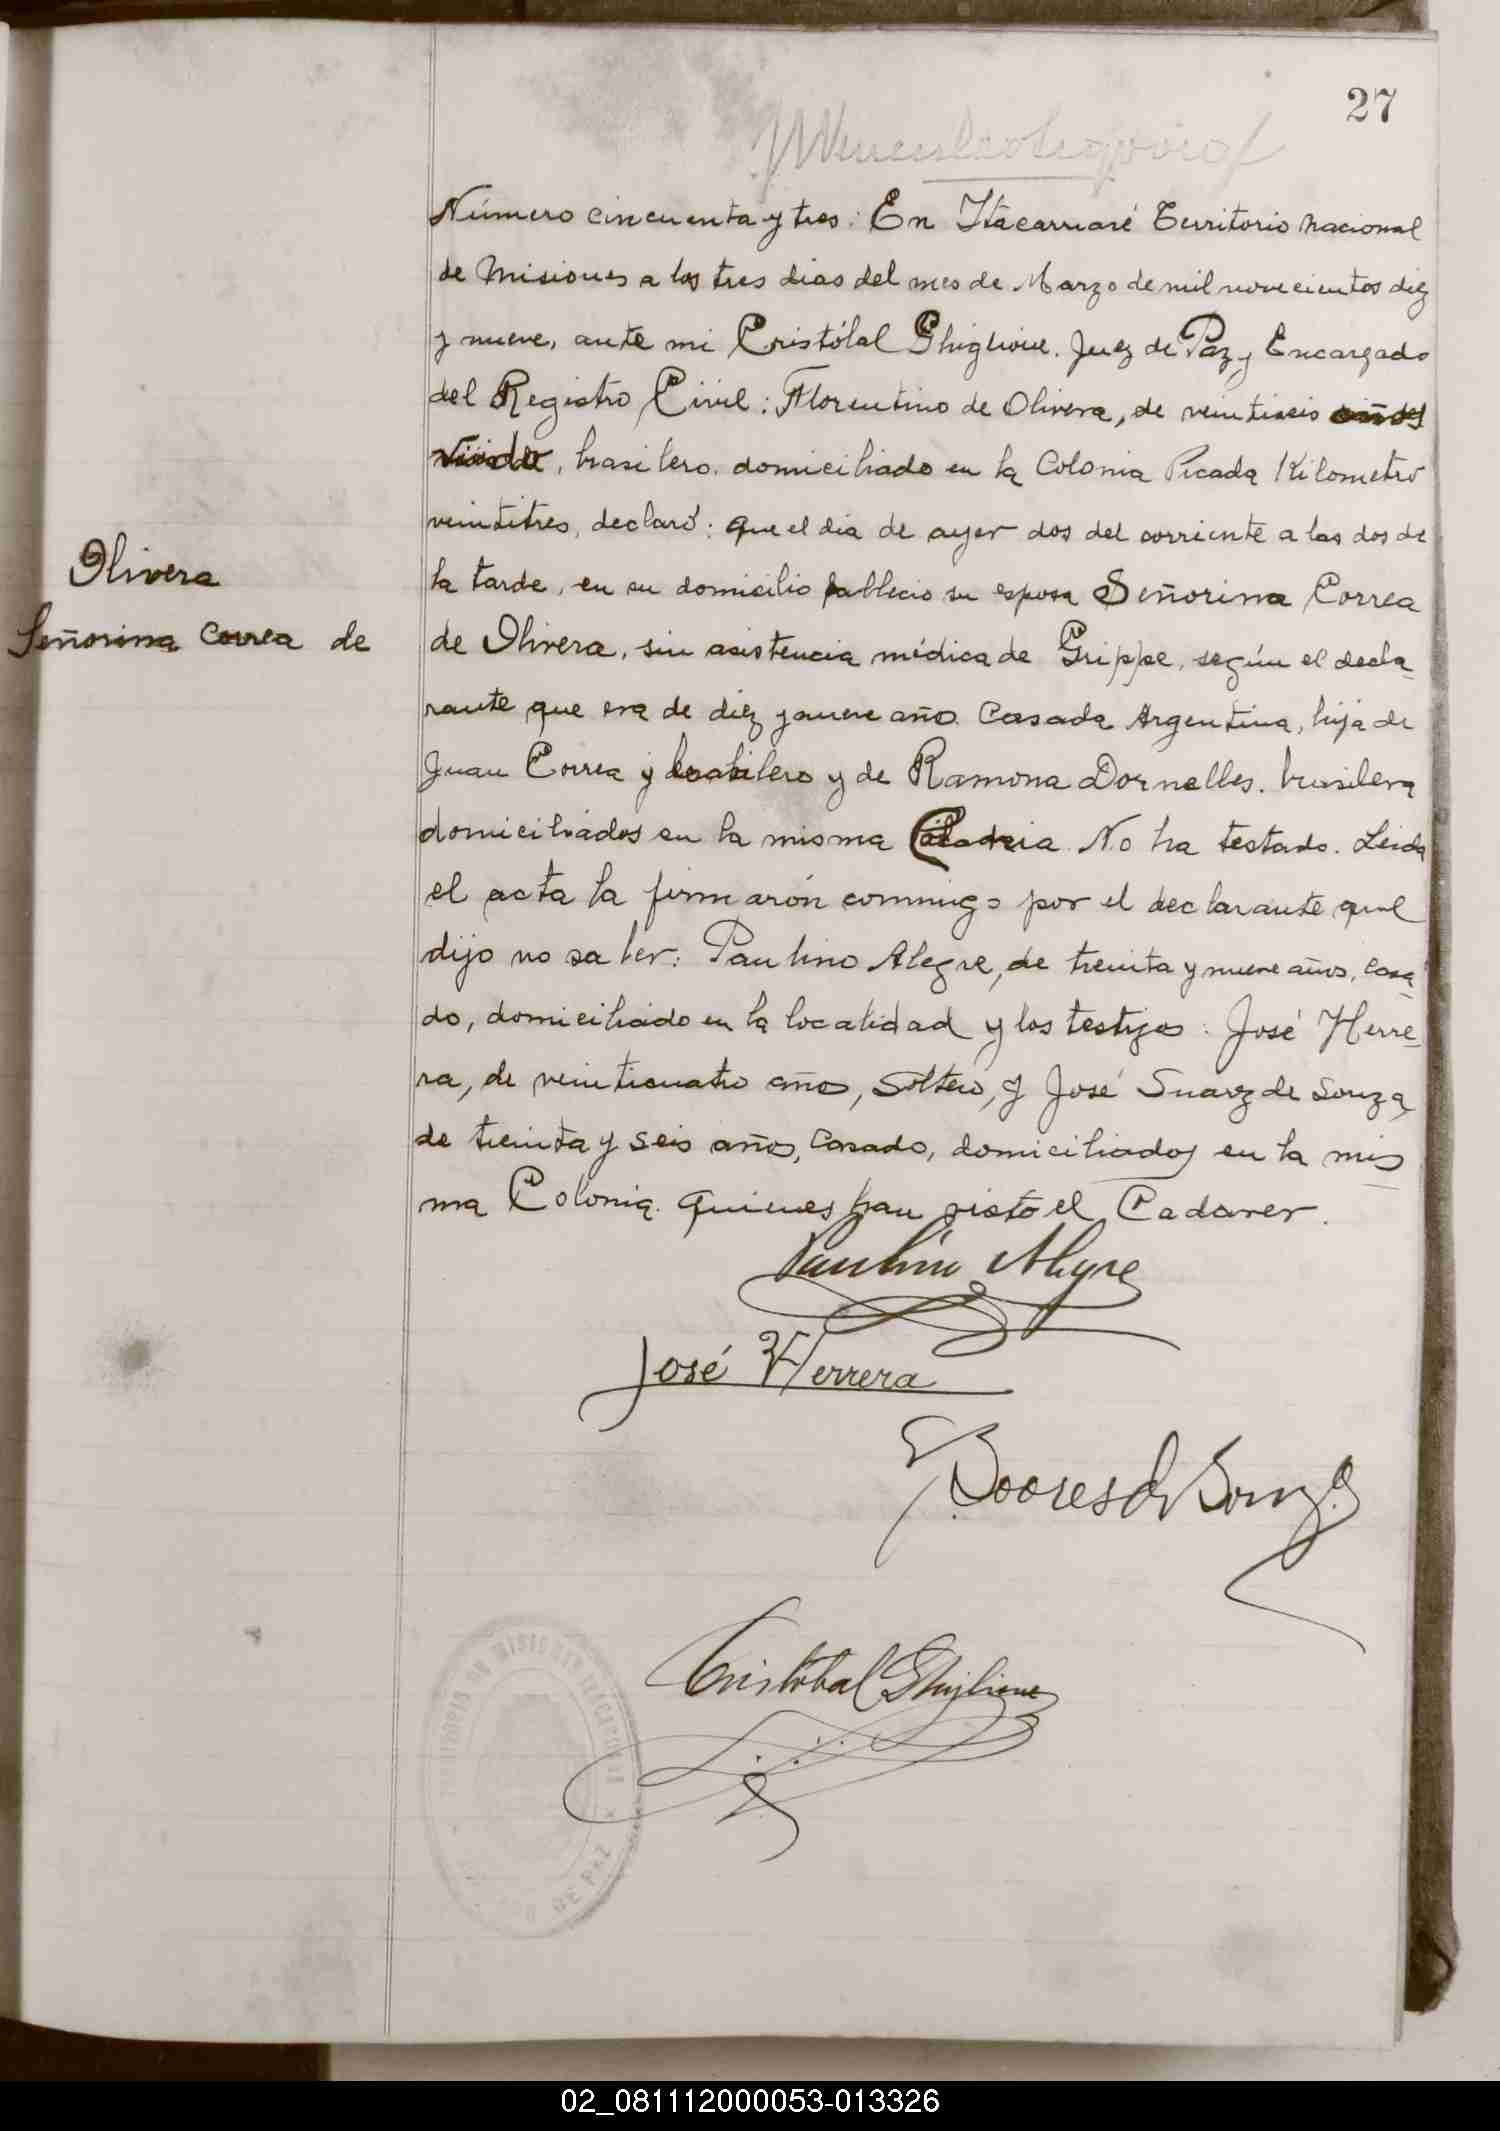 27
Número cincuenta y tres: En Itacaruaré Territorio Nacional
de Misiones a los tres dias del mes de Marzo de mil novecientos diez
y nueve, ante mi Cristóbal Ghiglione. Juez de Paz y Encargado
del Registro Civil: Florentino de Olivera, de veintiseis años
viudo, brasilero, domiciliado en la Colonia Picada Kilometro
veintitres, declaró: que el dia de ayer dos del corriente a las dos de
la tarde, en su domicilio fallecio su esposa Señorina Correa
de Olivera, sin asistencia médica de Grippe, según el decla-
rante que era de diez y nueve año. Casada Argentina, hija de
Juan Correa y brasilero y de Ramona Dornelles. brasilera
domiciliados en la misma No ha testado. Leida
el acta la firmarón conmigo por el declarante que
dijo no saber: Paulino Alegre, de treinta y nueve años, Casa-
do, domiciliado en la localidad y los testigos: José Herre-
ra, de veinticuatro años, Soltero, y José Suarez de Souza,
de treinta y seis años, Casado, domiciliados en la mis-
ma Colonia. quienes han visto el Cadaver.
Olivera
Señorina Correa de
Paulino Alegre
José Herrera
Soares de Souza
Cristobal Ghiglione
DE PAZ
02_081112000053-013326